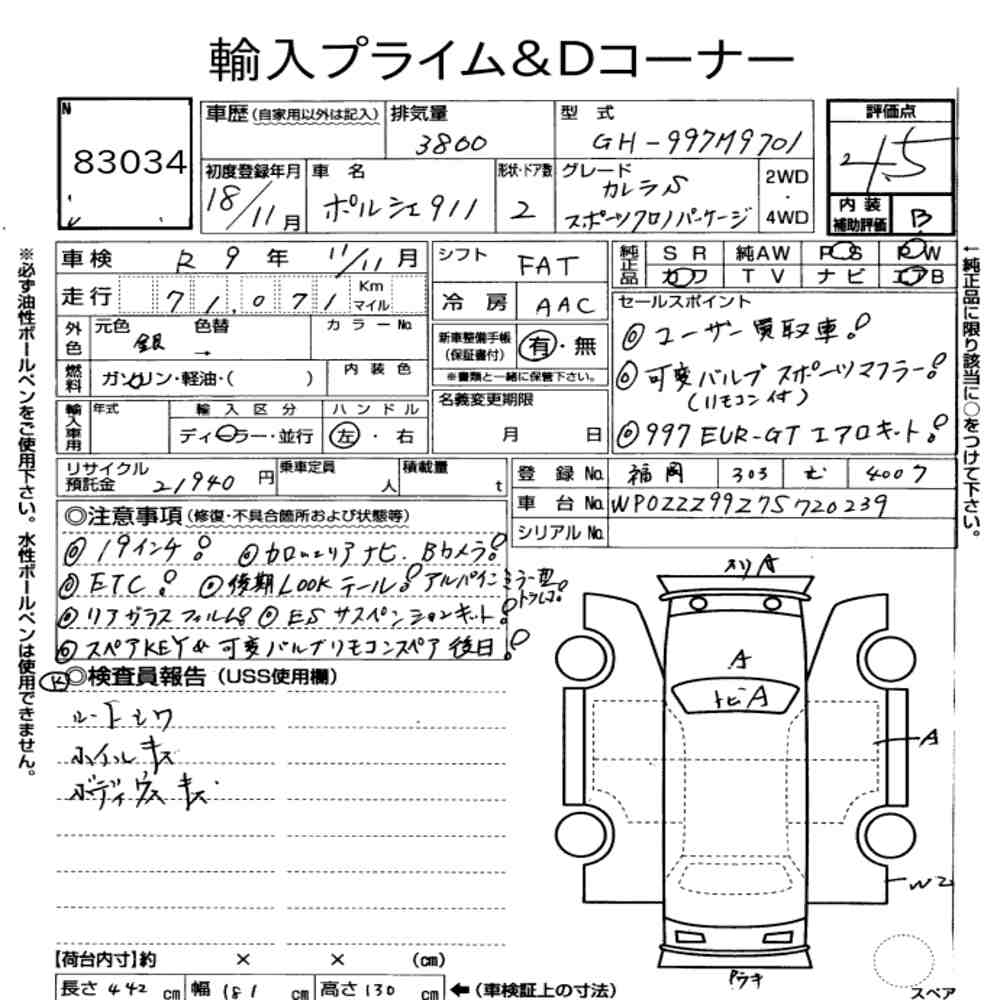 輸入プライム&Dコーナー
N
83034
車歴(自家用以外は記入)
排気量
3800
型式
GH-997M9701
評価点
4.5
初度登録年月
18/11月
車名
ポルシェ911
形状・ドア数
2
グレード
カレラS
スポーツクロノパッケージ
2WD
・
4WD
内装
補助評価
B
車検 R9年11/11月
走行 71,071 Km マイル
シフト FAT
冷房 AAC
純正品
SR 純AW PS PW
カワ TV ナビ エアB
外色
元色 銀 色替 →
カラーNo.
燃料
ガソリン・軽油・( )
内装色
新車整備手帳
(保証書付)
有・無
※書類と一緒に保管下さい。
セールスポイント
◎ユーザー買取車!
◎可変バルブスポーツマフラー!
(リモコン付)
◎997EUR-GTエアロキット!
輸入車用
年式
輸入区分
ディーラー・並行
ハンドル
左・右
名義変更期限
月 日
リサイクル
預託金 21940円
乗車定員 人
積載量 t
登録No. 福岡 303 む 4007
車台No. WP0ZZZ99Z7S720239
シリアルNo.
◎注意事項(修復・不具合箇所および状態等)
◎19インチ! ◎カロッツェリアナビ.Bカメラ!
◎ETC! ◎後期LOOKテール! アルパインミラー型
ドラレコ!
◎リアガラスフィルム! ◎ESサスペンションキット!
◎スペアKEY&可変バルブリモコンスペア後日!
◎検査員報告(USS使用欄)
シートシワ
ホイルキズ
ボディウスキズ
スリA
A
トビA
A
W2
ワラキ
スペア
【荷台内寸】約 × × (cm)
長さ442cm 幅181cm 高さ130cm ←(車検証上の寸法)
※必ず油性ボールペンをご使用下さい。水性ボールペンは使用できません。
←純正品に限り該当に○をつけて下さい。